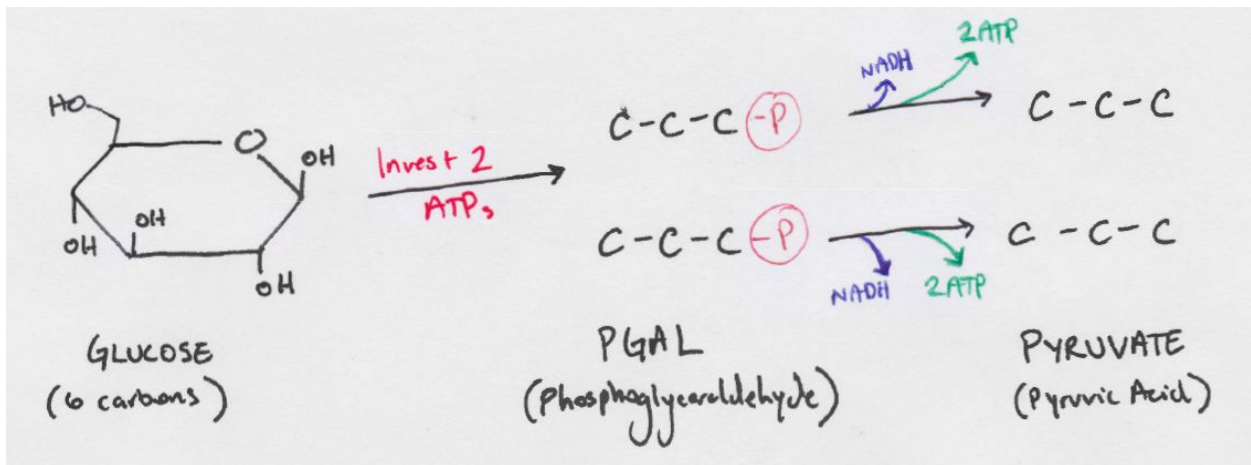 HO
O
OH
OH
OH
OH
Invest 2
ATPs
C-C-C-P
NADH
2ATP
C-C-C
C-C-C-P
NADH
2ATP
C-C-C
GLUCOSE
(6 carbons)
PGAL
(Phosphoglyceraldehyde)
PYRUVATE
(Pyruvic Acid)